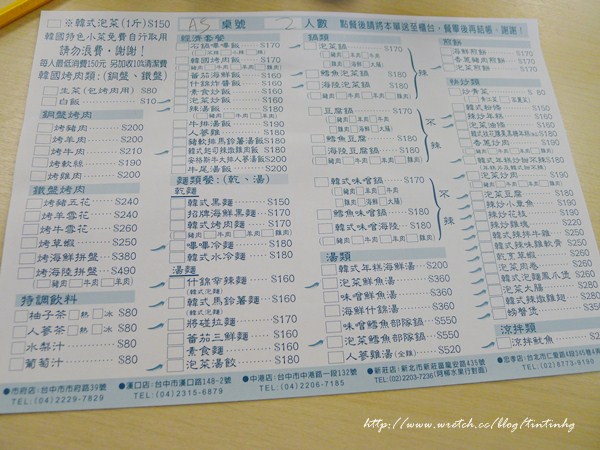 ※韓式泡菜(1斤)$150
韓國特色小菜免費自行取用
請勿浪費，謝謝!
每人最低消費150元 另加收10%清潔費
韓國烤肉類:(銅盤、鐵盤)
生菜(包烤肉用) $80
白飯 $10
銅盤烤肉
烤豬肉 $200
烤羊肉 $200
烤牛肉 $210
烤軟絲 $190
烤雞肉 $200
鐵盤烤肉
烤豬五花 $240
烤羊雪花 $240
烤牛雪花 $260
烤草蝦 $250
烤海鮮拼盤 $380
烤海陸拼盤 $490
(豬肉 牛肉 羊肉 雞肉)
特調飲料
柚子茶(熱 冰) $80
人蔘茶(熱 冰) $80
水梨汁 $80
葡萄汁 $80
A5 桌號 2 人數 點餐後請將本單送至櫃台，餐畢後再結帳，謝謝!
經濟套餐
石鍋嗶嗶飯 $170
韓國烤肉飯 $170
番茄海鮮飯 $160
什錦炸醬飯 $160
素食炒飯 $160
泡菜炒飯 $160
辣湯飯 $180
牛排湯飯 $190
人蔘雞 $180
豬軟排馬鈴薯湯飯 $180
韓式起司辣燉雞肉飯 $200
安格斯牛大排人蔘湯飯 $200
牛尾湯飯 $200
麵類餐:(乾、湯)
乾麵
韓式黑麵 $150
招牌海鮮黑麵 $170
韓式烤肉麵 $170
嗶嗶冷麵 $180
韓式水冷麵 $180
湯麵
什錦辛辣麵 $160
(韓式泡麵)
韓式馬鈴薯麵 $160
(韓式泡麵)
將碰拉麵 $170
番茄三鮮麵 $160
素食麵 $160
泡菜湯餃 $180
鍋類
泡菜鍋 $170
鱈魚泡菜鍋 $180
海陸泡菜鍋 $180
辣
豆腐鍋 $170
鱈魚豆腐鍋 $180
海陸豆腐鍋 $180
不辣
韓式味噌鍋 $170
鱈魚味噌鍋 $180
韓式味噌海陸 $180
不辣
湯類
韓式年糕海鮮湯 $200
泡菜鮮魚湯 $350
味噌鮮魚湯 $350
味噌鱈魚湯 $360
味噌鱈魚部隊鍋 $550
泡菜鱈魚部隊鍋 $550
人蔘雞湯(全雞) $520
煎餅
海鮮煎餅 $170
香蔥豬肉煎餅 $170
泡菜煎餅 $170
快炒類
炒青菜 $80
泡菜豆腐 $180
辣炒小章魚 $190
辣炒花枝 $190
辣炒雞塊 $220
韓式辣拌牛雜 $220
韓式辣味雞軟骨 $220
乾烹草蝦 $250
泡菜肉卷 $260
韓式泡麵鳳爪煲 $260
泡菜大腸 $260
韓式辣燉雞翅 $260
螃蟹煲 $350
涼拌類
涼拌魷魚
●市府店:台中市市府路39號
TEL:(04)2229-7829
●漢口店:台中市漢口路148-2號
TEL:(04)2315-6879
●中港店:台中市中港路一段132號
TEL:(04)2206-7185
●新莊店:新北市新莊區龍安路435號
TEL:(02)2203-7236
●忠孝店:台北市仁愛路4段345巷
TEL:(02)8773-9190
http://www.wretch.cc/blog/tintinhg